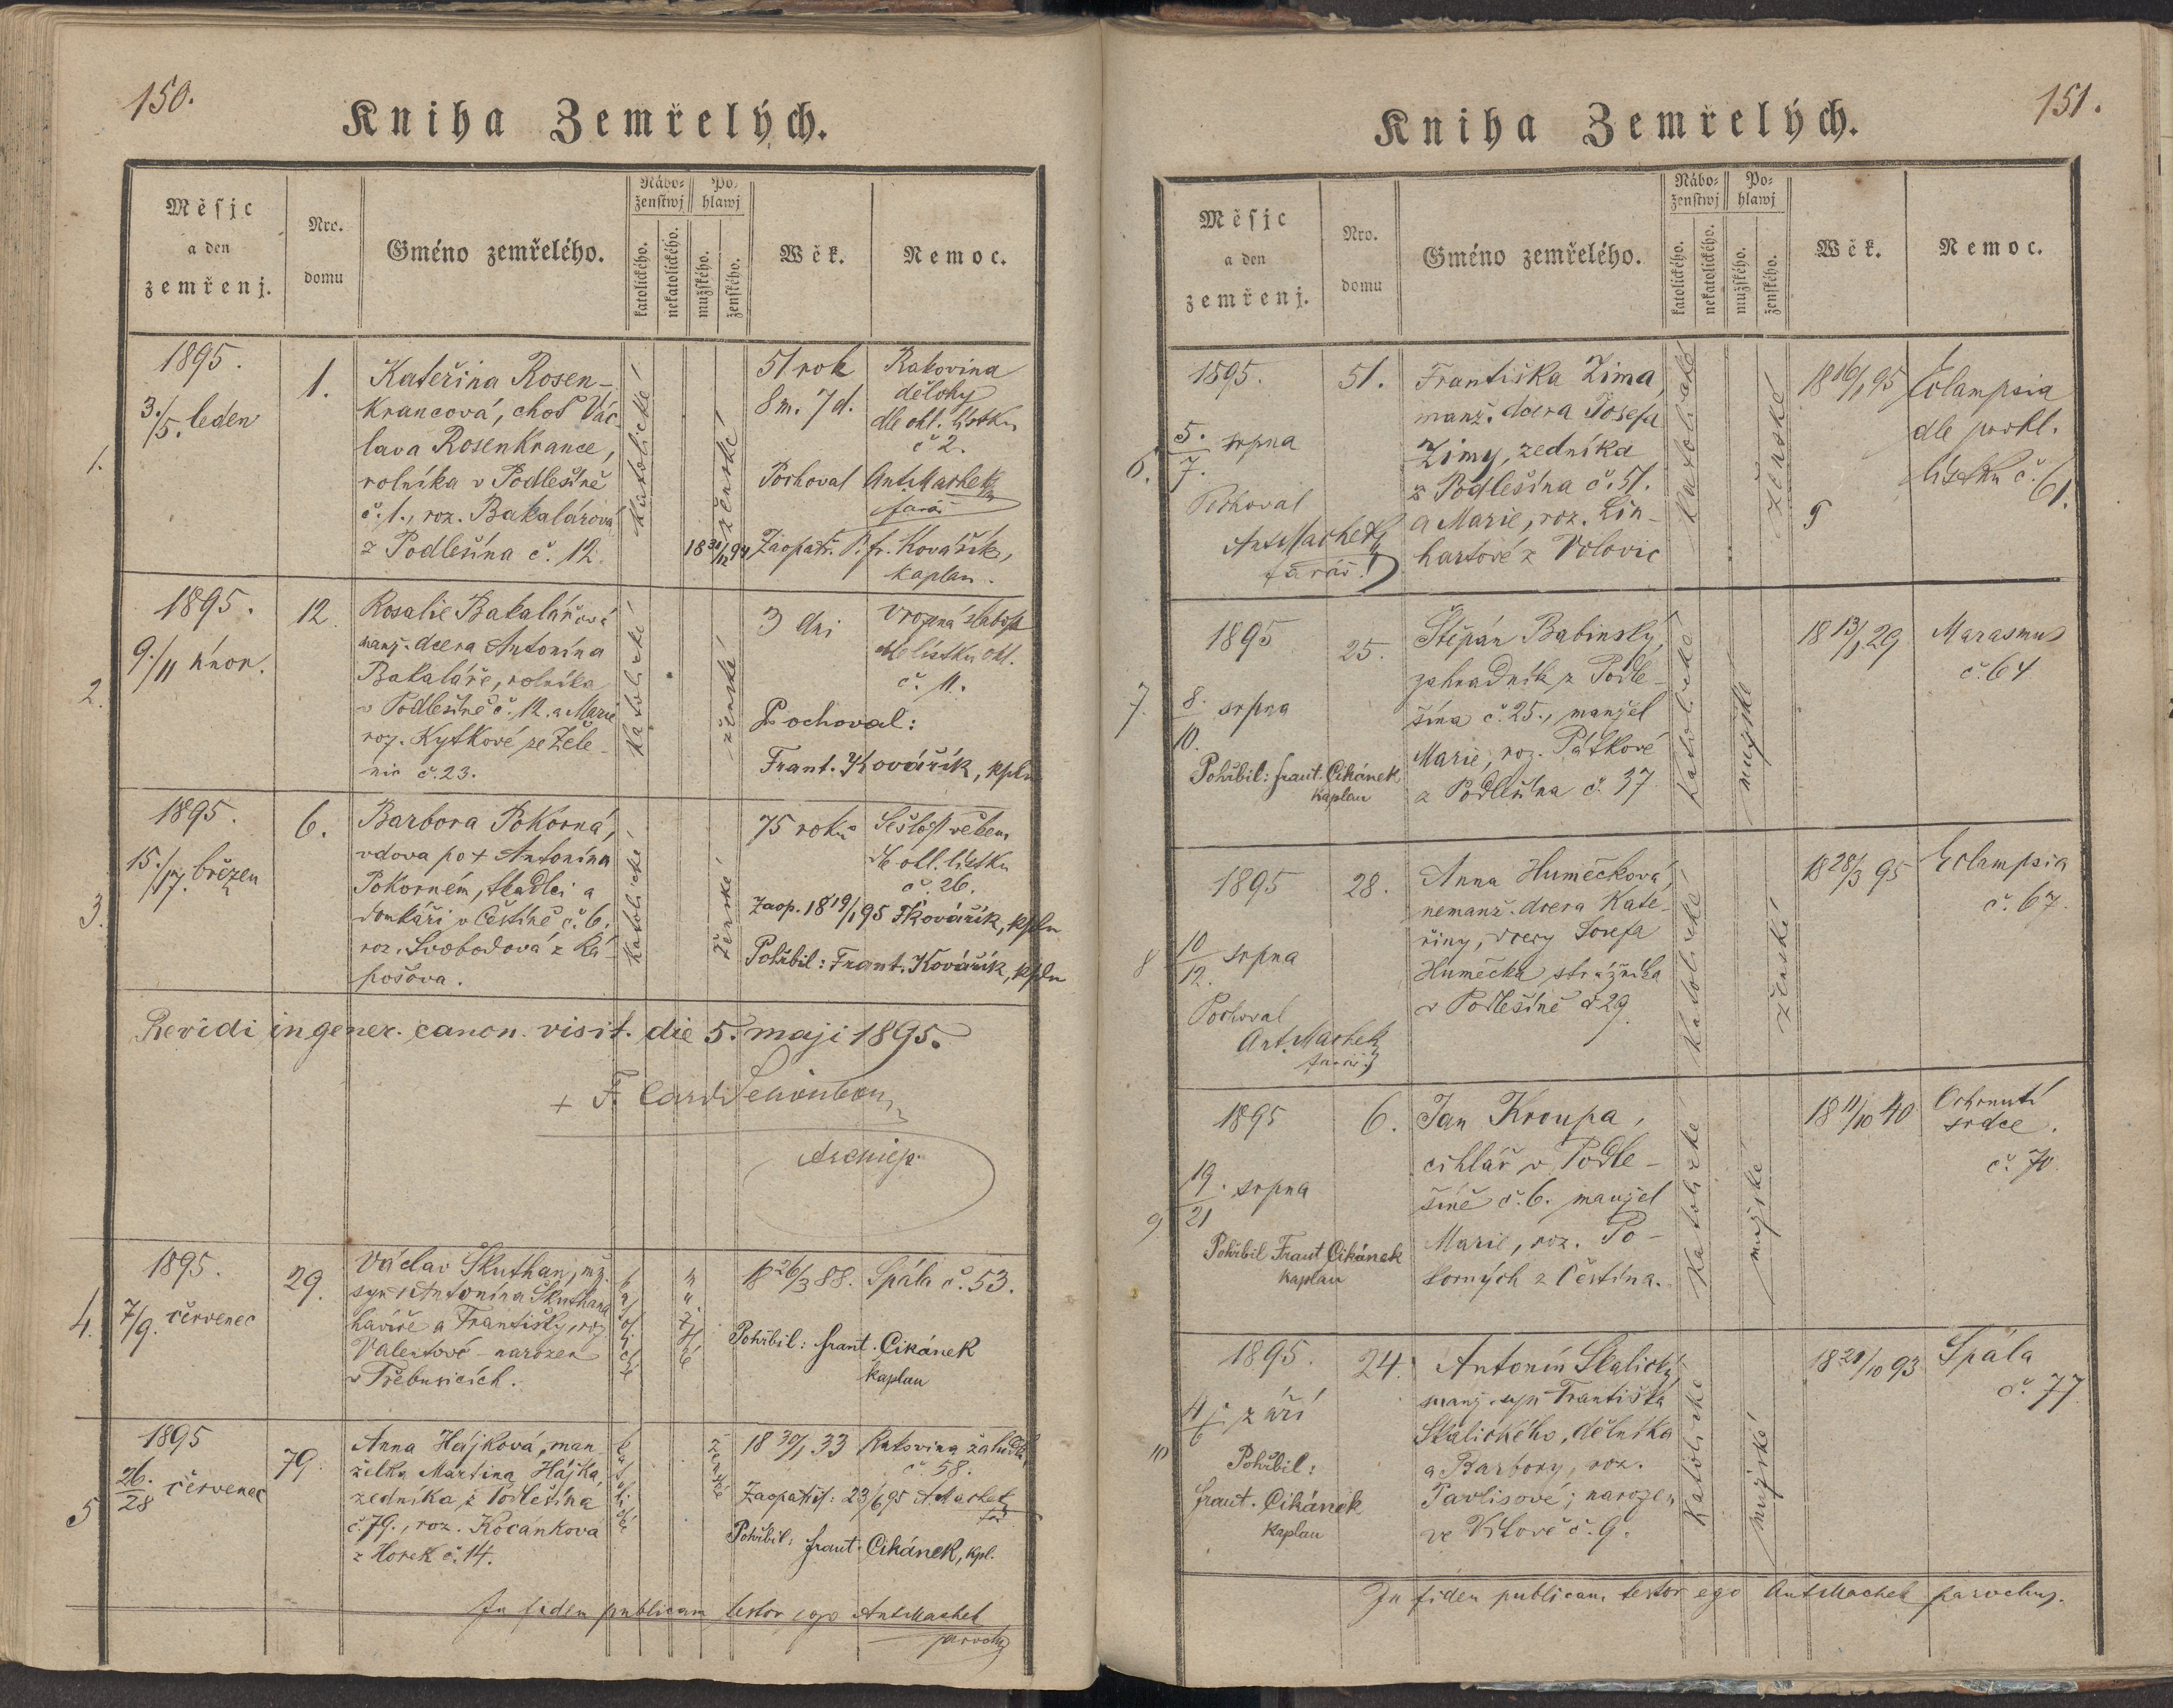 150.
Kniha Zemřelých.
Měsjc a den zemřenj.
Nro. domu
Gméno zemřelého.
Nábo=ženstwj
katolického.
nekatolického.
Po=hlawj
mužského.
ženského.
Wěk.
Nemoc.
1.
1895.
3./5. leden
1.
Kateřina Rosen-
krancová, choť Vác-
lava Rosenkrance,
rolníka v Podlešíně
č. 1., roz. Bakalářová
z Podlešína č. 12.
katolické
ženské
51 rok
8 m. 7 d.
Rakovina
dělohy
dle ohl. lístku
č 2.
Pochoval Ant. Machek
farář
18 30/12 94 Zaopatř. P. fr. Kovářík,
kaplan.
2.
1895.
9./11 únor.
12.
Rosalie Bakalářová
manž. dcera Antonína
Bakaláře, rolníka
v Podlešíně č. 12. a Marie
roz. Kytkové ze Žele-
nic č. 23.
katolické
ženské
3 dni
vrozená slabost
dle lístku ohl.
č. 11.
Pochoval:
Frant. Kovářík, kpln
3.
1895.
15./17. březen
6.
Barbora Pokorná,
vdova po + Antonínu
Pokorném, tkadlci a
domkáři v Čestíně č. 6.
roz. Svobodová z
katolické
ženské
75 roků
Sešlost věkem
dle ohl. lístku
č. 26.
Zaop. 18 19/1 95 Kovářík, kpln
Pohřbil: Frant. Kovářík, kpln
Revidi in gener. canon. visit. die 5. maji 1895.
+ F. Card Schönborn
4.
1895.
7/9. červenec
29.
Václav Skuthan, mž.
syn Antonína Skuthana
havíře a Františky, roz
Valentové - narozen
v Třebusicích.
katolické
mužské
18 26/3 88.
Spála č. 53.
Pohřbil: Frant. Cikánek
kaplan
5
1895
26./28 červenec
79.
Anna Hájková, man-
želka Martina Hájka,
zedníka z Podlešína
č. 79., roz. Kocánková
z Horek č. 14.
katolické
ženské
18 30/1 33
Rakovina žaludku
č. 58.
Zaopatřil: 23/6 95 A Machek
far
Pohřbil: Frant. Cikánek, kpl.
In fidem publicam testor ego Ant Machek
parochus
151.
Kniha Zemřelých.
Měsjc a den zemřenj.
Nro. domu
Gméno zemřelého.
Nábo=ženstwj
katolického.
nekatolického.
Po=hlawj
mužského.
ženského.
Wěk.
Nemoc.
6.
1895.
5./7. srpna
Pochoval
Ant Machek
farář
51.
Františka Zima,
manž. dcera Josefa
Zimy, zedníka
z Podlešína č. 51.
a Marie, roz. Lin-
hartové z Volovic
katolické
ženské
18 16/1 95
Eclampsia
dle prohl.
lístku č.
61.
7.
1895
8./10. srpna
Pohřbil: Frant. Cikánek
kaplan
25.
Štěpán Babinský,
zahradník z Podle-
šína č. 25., manžel
Marie, roz. Pátkové
z Podlešína č. 37
katolické
mužské
18 13/1 29
Marasmus
č. 64
8
1895
10/12. srpna
Pochoval
Ant. Machek
farář
28.
Anna Humečková,
nemanž. dcera Kate-
řiny, dcery Josefa
Humečka strážníka
v Podlešíně č 29.
katolické
ženské
18 28/3 95
Eclampsia
č. 67.
9
1895
19./21 srpna
Pohřbil Frant Cikánek
kaplan
6.
Jan Kroupa,
cihlář v Podle-
šíně č. 6. manžel
Marie, roz. Po-
korných z Čestína.
katolické
mužské
18 11/10 40
Ochrnutí
srdce.
č. 70
10
1895.
4/6 září
Pohřbil:
Frant. Cikánek
kaplan
24.
Antonín Skalický,
manž. syn Františka
Skalického, dělníka
a Barbory, roz.
Pavlisové; narozen
ve Vítově č. 9.
katolické
mužské
18 21/10 93
Spála
č. 77
In fidem publicam testor ego Ant Machek parochus.